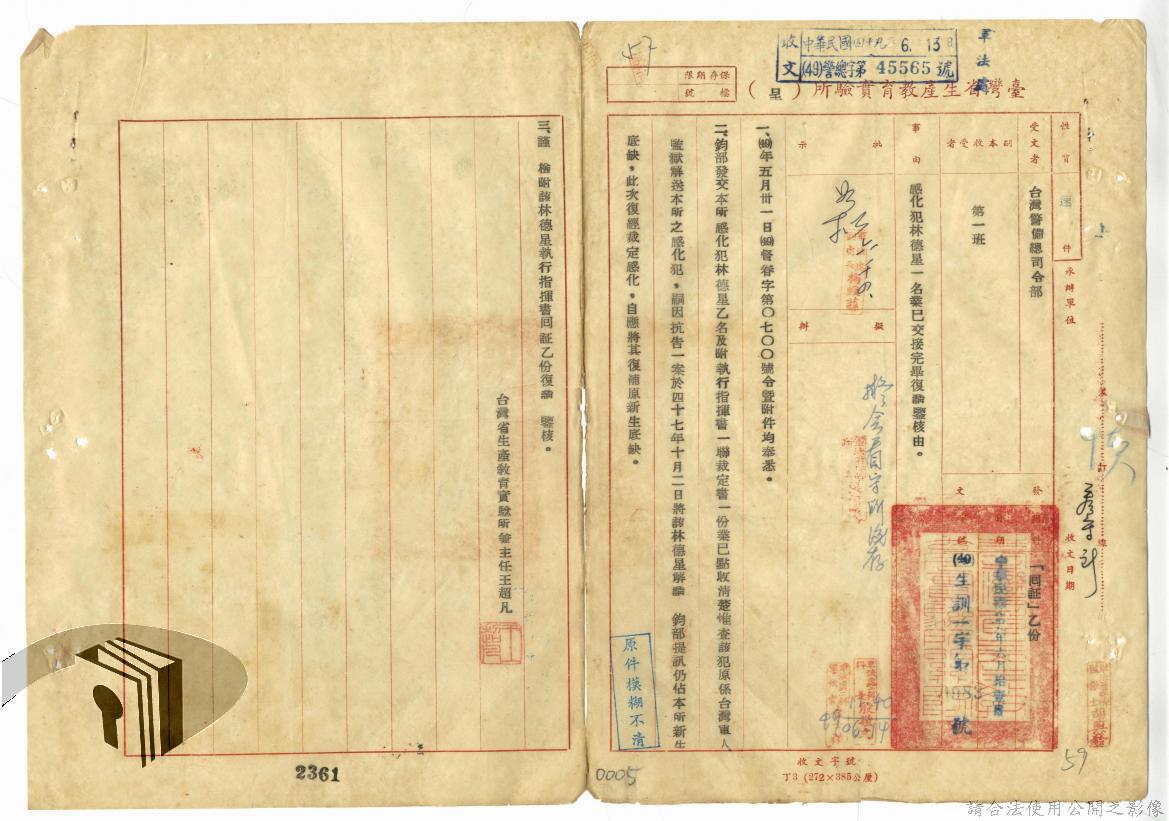 收文
中華民國四十九年6月13日
(49)警總字第45565號
軍法處
57
保存期限
檔號
臺灣省生產教育實驗所（呈）
性質
速件
受文者
台灣警備總司令部
副本收受者
第一班
事由
感化犯林德星一名業已交接完畢復請鑒核由。
批示
擬辦
擬會看守所後存
發文
附件
「回証」乙份
日期
中華民國四十九年六月拾壹日
號
(49)生訓一字第1083號
承辦單位
收文日期
收文字號
一、(49)年五月卅一日(49)督眷字第〇七〇〇號令暨附件均奉悉。
二、鈞部發交本所感化犯林德星乙名及附執行指揮書一聯裁定書一份業已點收清楚惟查該犯原係台灣軍人
監獄解送本所之感化犯，嗣因抗告一案於四十七年十月二日將該林德星解請　鈞部提訊仍佔本所新生
底缺，此次復經裁定感化，自應將其復補原新生底缺。
三、謹　檢附該林德星執行指揮書回証乙份復請　鑒核。
台灣省生產教育實驗所兼主任王超凡
原件模糊不清
2361
0005
59
丁3 (272×385公厘)
請合法使用公開之影像